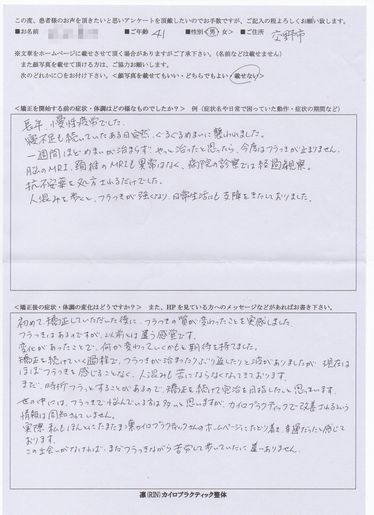 この度、患者様のお声を頂きたいと思いアンケートを頂戴したいのでお手数ですが、ご記入の程よろしくお願い致します。
■お名前 ■ご年齢 41 ■性別(男)女> ■ご住所 交野市
※文章をホームページに載せさせて頂く場合がありますがご了承下さい。(名前などは載せません)
また顔写真を載せて頂ける方は、ご協力お願いします。
次のどれかに○をお付け下さい。<顔写真を載せてもいい・どちらでもよい・載せない>
<矯正を開始する前の症状・体調はどの様なものでしたか?> 例(症状名や日常で困っていた動作・症状の期間など)
長年、慢性疲労でした。
寝不足も続いていたある日突然、ぐるぐるめまいに襲われました。
一週間ほどめまいが治まらず、やっと治ったと思ったら、今度はフラつきが止まりません。
脳のMRI、頚椎のMRIも異常はなく、病院の診察では経過観察。
抗不安薬を処方されるだけでした。
人混みを歩くと、フラつきが強くなり、日常生活にも支障をきたしておりました。
<矯正後の症状・体調の変化はどうですか? また、HPを見ている方へのメッセージなどがあればお書き下さい。
初めて矯正していただいた後に、フラつきの質が変わったことを実感しました。
フラつきはあるのですが、以前とは違う感覚です。
変化があったことで、何か変わっていくのかもと期待を持てました。
矯正を続けていく過程で、フラつきが治まったりぶり返したりと波がありましたが、現在は
ほぼフラつきを感じることなく、人混みも苦にならなくなってきております。
まだ、時折フラっとすることがあるので、矯正を続けて完治を目指したいと思います。
世の中には、フラつきで悩んでいる方は多いと思いますが、カイロプラクティックで改善されるという
情報は周知されていません。
実際、私もほんとにたまたま凛のカイロプラクティックさんのホームページにたどり着き、幸運だったと感じて
おります。
この出会いがなければ、まだフラつきながら苦労して歩いていたに違いありません。
凛(RIN)カイロプラクティック整体